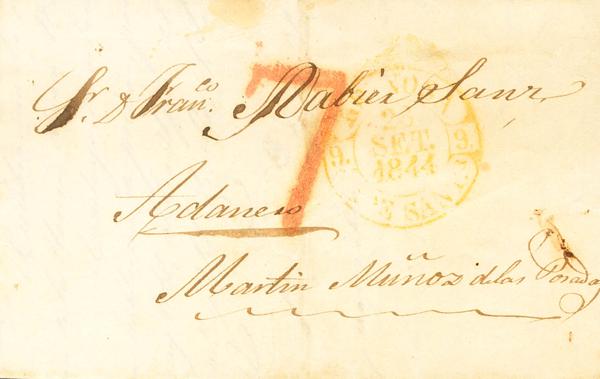 Sr. D. Fran.co Rabier Sanz
7
SET.
1844
9. 9.
Adanero
Martin Muñoz de las Posadas